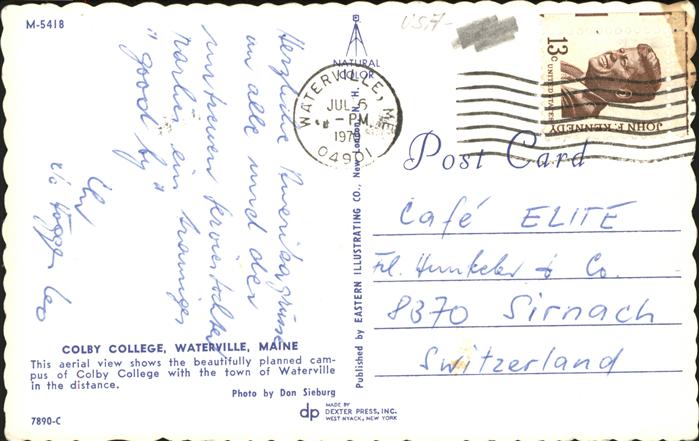 M-5418
USA-
NATURAL
COLOR
WATERVILLE, ME
JUL 6
PM
04901
13c
UNITED STATES
JOHN F. KENNEDY
Post Card
Herzliche Amerikagrüsse
an alle und der
untreuen Serviertochter
ein trauriges
"good by"
Café ELITE
Frl. Hunkeler & Co.
8370 Sirnach
Switzerland
Published by EASTERN ILLUSTRATING CO., New London, N. H.
COLBY COLLEGE, WATERVILLE, MAINE
This aerial view shows the beautifully planned cam-
pus of Colby College with the town of Waterville
in the distance.
Photo by Don Sieburg
7890-C
dp
MADE BY
DEXTER PRESS, INC.
WEST NYACK, NEW YORK